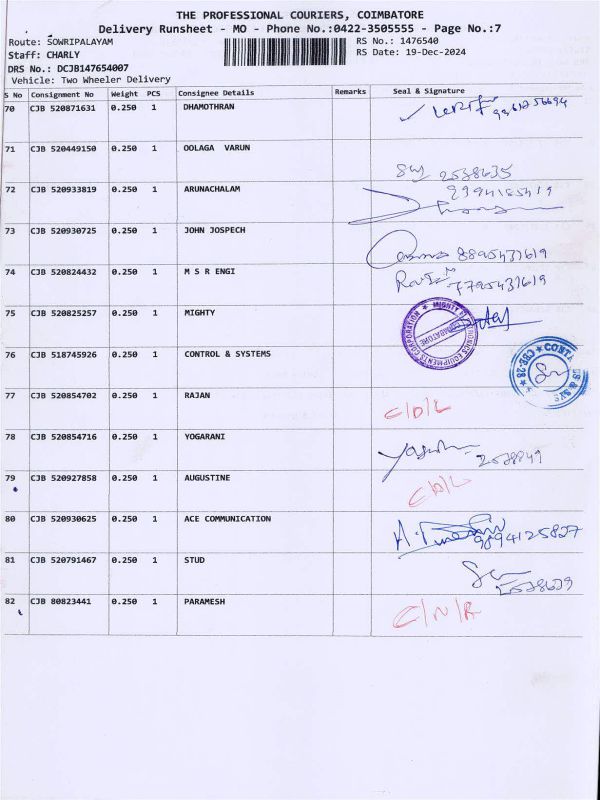 THE PROFESSIONAL COURIERS, COIMBATORE
Delivery Runsheet - MO - Phone No.:0422-3505555 - Page No.:7
Route: SOWRIPALAYAM RS No.: 1476540
Staff: CHARLY RS Date: 19-Dec-2024
DRS No.: DCJB147654007
Vehicle: Two Wheeler Delivery
S No Consignment No Weight PCS Consignee Details Remarks Seal & Signature
70 CJB 520871631 0.250 1 DHAMOTHRAN
71 CJB 520449150 0.250 1 OOLAGA VARUN
2538635
72 CJB 520933819 0.250 1 ARUNACHALAM
73 CJB 520930725 0.250 1 JOHN JOSPECH 8895437619
74 CJB 520824432 0.250 1 M S R ENGI 7795437619
75 CJB 520825257 0.250 1 MIGHTY
76 CJB 518745926 0.250 1 CONTROL & SYSTEMS
77 CJB 520854702 0.250 1 RAJAN C/D/L
78 CJB 520854716 0.250 1 YOGARANI
79 CJB 520927858 0.250 1 AUGUSTINE C/D/L
80 CJB 520930625 0.250 1 ACE COMMUNICATION 9894125827
81 CJB 520791467 0.250 1 STUD
82 CJB 80823441 0.250 1 PARAMESH C/N/R